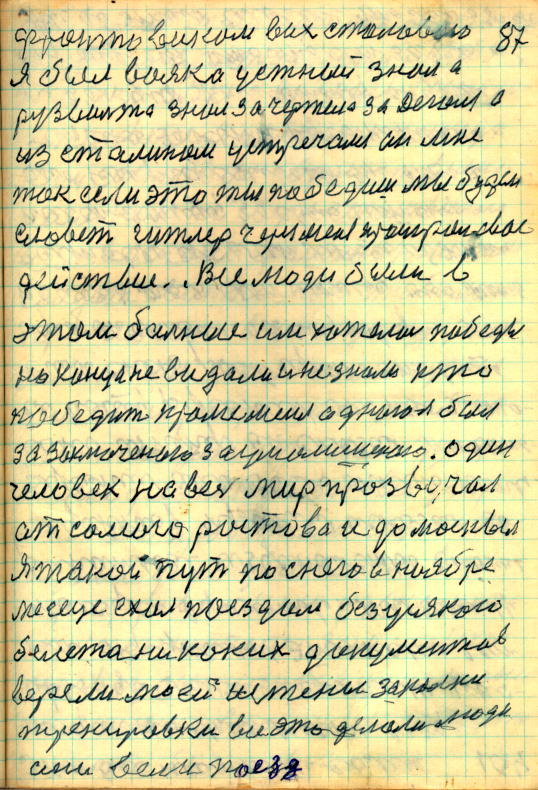 87
фронтовиком вих сталовою
я был вояка устный знал а
рузвылта знал за чертела за Деголя а
из сталином устречалсь он мне
так если это ты победиш мы будем
совет гитлер через меня проиграл свое
действие. Все люди были в
этом балные им хотелось победы
но конца не видали и не знали кто
победит кроме меня одного я был
за заключеного за мошеника. один
человек на вех мир прозвучал
от самого ростова и до москвы
я такой пут по снегов ноябре
месеце ехал поездам без усякого
белета никоких документов
верели моей истены закалки
тренировки все это делали люди
они вели поезд